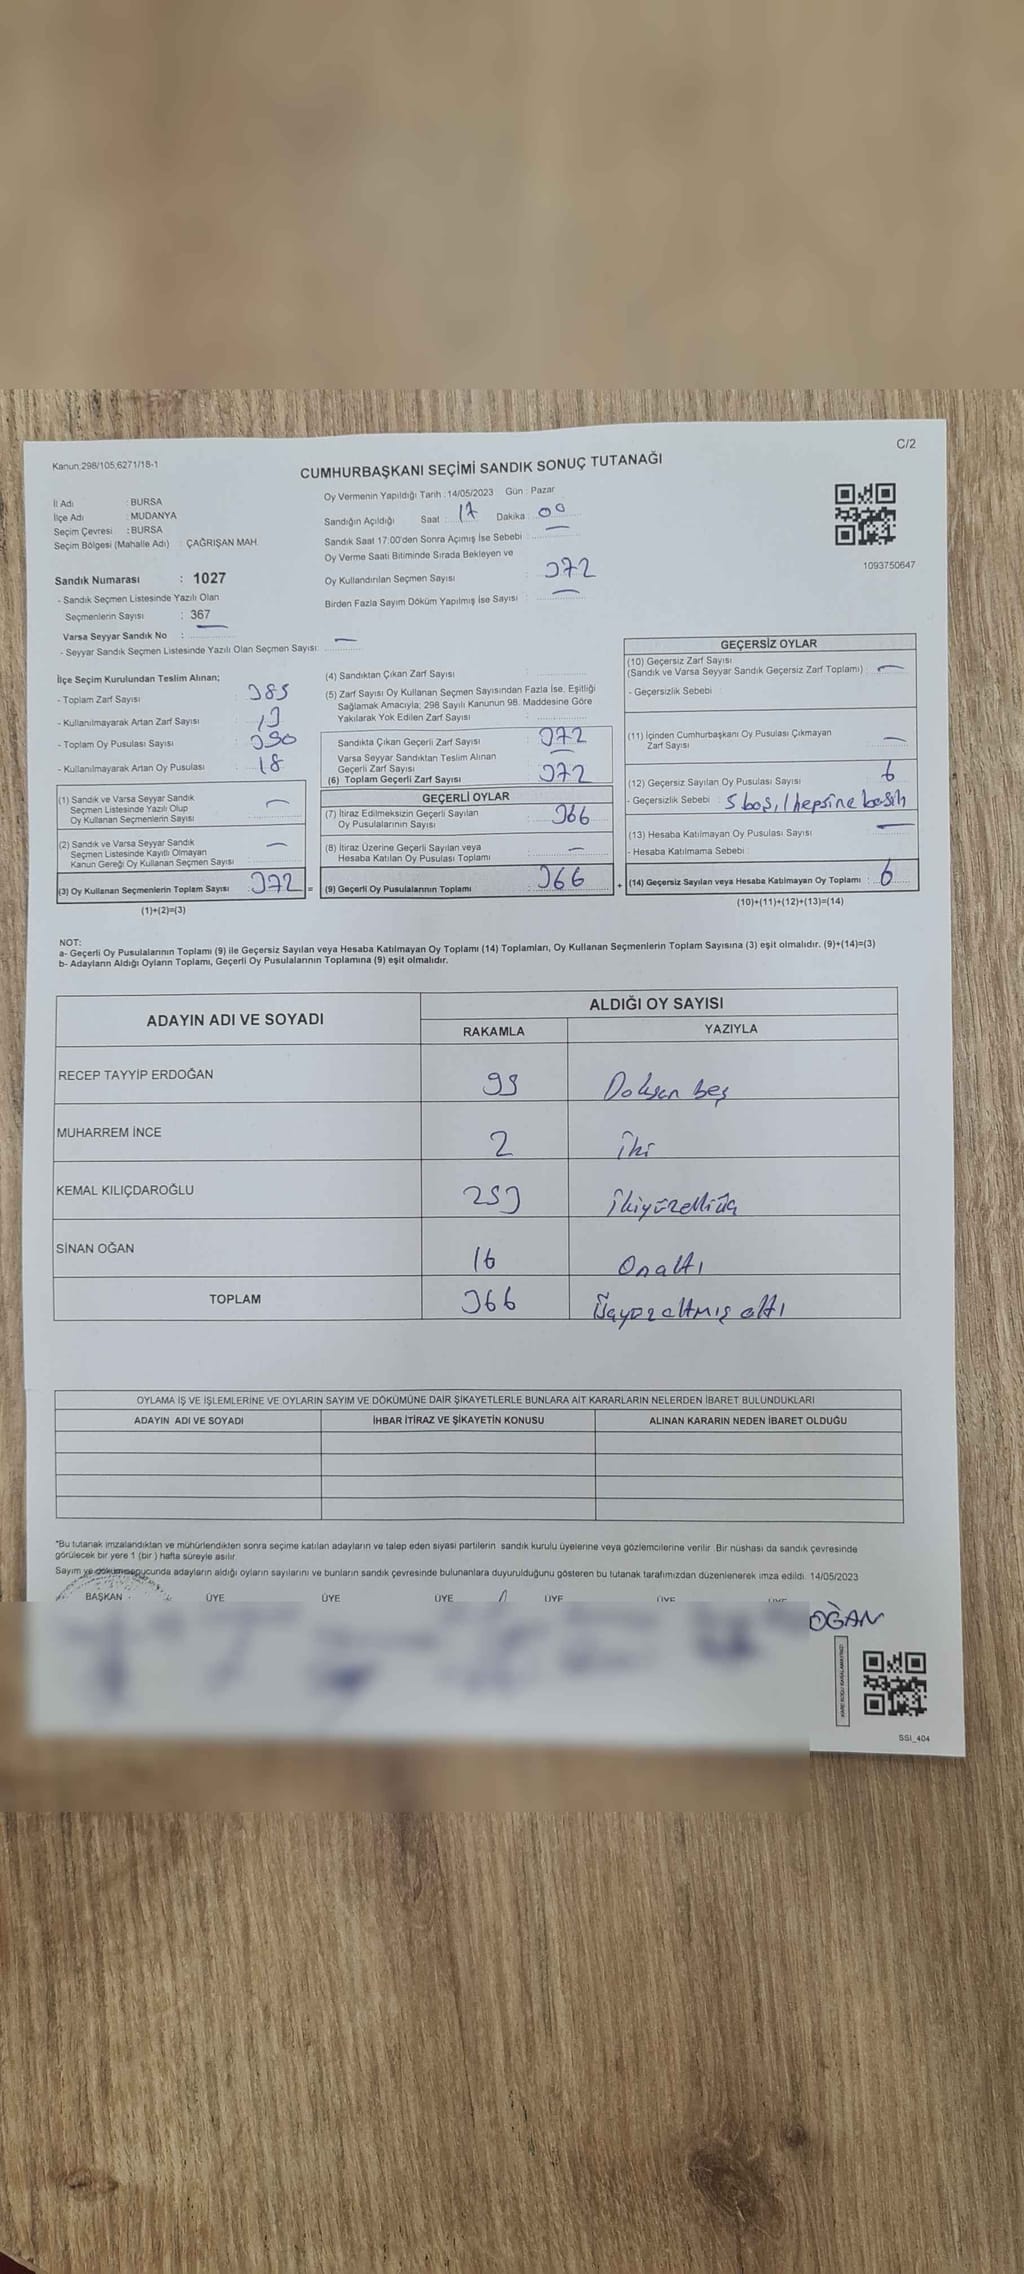 C/2
Kanun,298/105,6271/18-1
CUMHURBAŞKANI SEÇİMİ SANDIK SONUÇ TUTANAĞI
İl Adı : BURSA
İlçe Adı : MUDANYA
Seçim Çevresi : BURSA
Seçim Bölgesi (Mahalle Adı) : ÇAĞRIŞAN MAH.
Sandık Numarası : 1027
- Sandık Seçmen Listesinde Yazılı Olan
Seçmenlerin Sayısı : 367
Varsa Seyyar Sandık No :
- Seyyar Sandık Seçmen Listesinde Yazılı Olan Seçmen Sayısı: —
Oy Vermenin Yapıldığı Tarih : 14/05/2023 Gün : Pazar
Sandığın Açıldığı Saat : 17 Dakika : 00
Sandık Saat 17:00'den Sonra Açımış İse Sebebi : —
Oy Verme Saati Bitiminde Sırada Bekleyen ve
Oy Kullandırılan Seçmen Sayısı : 372
Birden Fazla Sayım Döküm Yapılmış İse Sayısı : —
1093750647
İlçe Seçim Kurulundan Teslim Alınan;
- Toplam Zarf Sayısı : 385
- Kullanılmayarak Artan Zarf Sayısı : 13
- Toplam Oy Pusulası Sayısı : 390
- Kullanılmayarak Artan Oy Pusulası : 18
(1) Sandık ve Varsa Seyyar Sandık
Seçmen Listesinde Yazılı Olup
Oy Kullanan Seçmenlerin Sayısı : —
(2) Sandık ve Varsa Seyyar Sandık
Seçmen Listesinde Kayıtlı Olmayan
Kanun Gereği Oy Kullanan Seçmen Sayısı : —
(3) Oy Kullanan Seçmenlerin Toplam Sayısı : 372 =
(1)+(2)=(3)
(4) Sandıktan Çıkan Zarf Sayısı :
(5) Zarf Sayısı Oy Kullanan Seçmen Sayısından Fazla İse, Eşitliği
Sağlamak Amacıyla; 298 Sayılı Kanunun 98. Maddesine Göre
Yakılarak Yok Edilen Zarf Sayısı :
Sandıkta Çıkan Geçerli Zarf Sayısı : 372
Varsa Seyyar Sandıktan Teslim Alınan
Geçerli Zarf Sayısı : —
(6) Toplam Geçerli Zarf Sayısı : 372
GEÇERLİ OYLAR
(7) İtiraz Edilmeksizin Geçerli Sayılan
Oy Pusulalarının Sayısı : 366
(8) İtiraz Üzerine Geçerli Sayılan veya
Hesaba Katılan Oy Pusulası Toplamı : —
(9) Geçerli Oy Pusulalarının Toplamı : 366 +
GEÇERSİZ OYLAR
(10) Geçersiz Zarf Sayısı
(Sandık ve Varsa Seyyar Sandık Geçersiz Zarf Toplamı) : —
- Geçersizlik Sebebi :
(11) İçinden Cumhurbaşkanı Oy Pusulası Çıkmayan
Zarf Sayısı : —
(12) Geçersiz Sayılan Oy Pusulası Sayısı : 6
- Geçersizlik Sebebi : 5 boş, 1 hepsine basılı
(13) Hesaba Katılmayan Oy Pusulası Sayısı : —
- Hesaba Katılmama Sebebi :
(14) Geçersiz Sayılan veya Hesaba Katılmayan Oy Toplamı : 6
(10)+(11)+(12)+(13)=(14)
NOT:
a- Geçerli Oy Pusulalarının Toplamı (9) ile Geçersiz Sayılan veya Hesaba Katılmayan Oy Toplamı (14) Toplamları, Oy Kullanan Seçmenlerin Toplam Sayısına (3) eşit olmalıdır. (9)+(14)=(3)
b- Adayların Aldığı Oyların Toplamı, Geçerli Oy Pusulalarının Toplamına (9) eşit olmalıdır.
ADAYIN ADI VE SOYADI ALDIĞI OY SAYISI
RAKAMLA YAZIYLA
RECEP TAYYİP ERDOĞAN 95 Doksan beş
MUHARREM İNCE 2 İki
KEMAL KILIÇDAROĞLU 253 İkiyüzelliüç
SİNAN OĞAN 16 Onaltı
TOPLAM 366 Üçyüzaltmış altı
OYLAMA İŞ VE İŞLEMLERİNE VE OYLARIN SAYIM VE DÖKÜMÜNE DAİR ŞİKAYETLERLE BUNLARA AİT KARARLARIN NELERDEN İBARET BULUNDUKLARI
ADAYIN ADI VE SOYADI İHBAR İTİRAZ VE ŞİKAYETİN KONUSU ALINAN KARARIN NEDEN İBARET OLDUĞU
*Bu tutanak imzalandıktan ve mühürlendikten sonra seçime katılan adayların ve talep eden siyasi partilerin sandık kurulu üyelerine veya gözlemcilerine verilir. Bir nüshası da sandık çevresinde
görülecek bir yere 1 (bir ) hafta süreyle asılır.
Sayım ve döküm sonucunda adayların aldığı oyların sayılarını ve bunların sandık çevresinde bulunanlara duyurulduğunu gösteren bu tutanak tarafımızdan düzenlenerek imza edildi. 14/05/2023
BAŞKAN ÜYE ÜYE ÜYE ÜYE ÜYE ÜYE
OĞAN
SSI_404